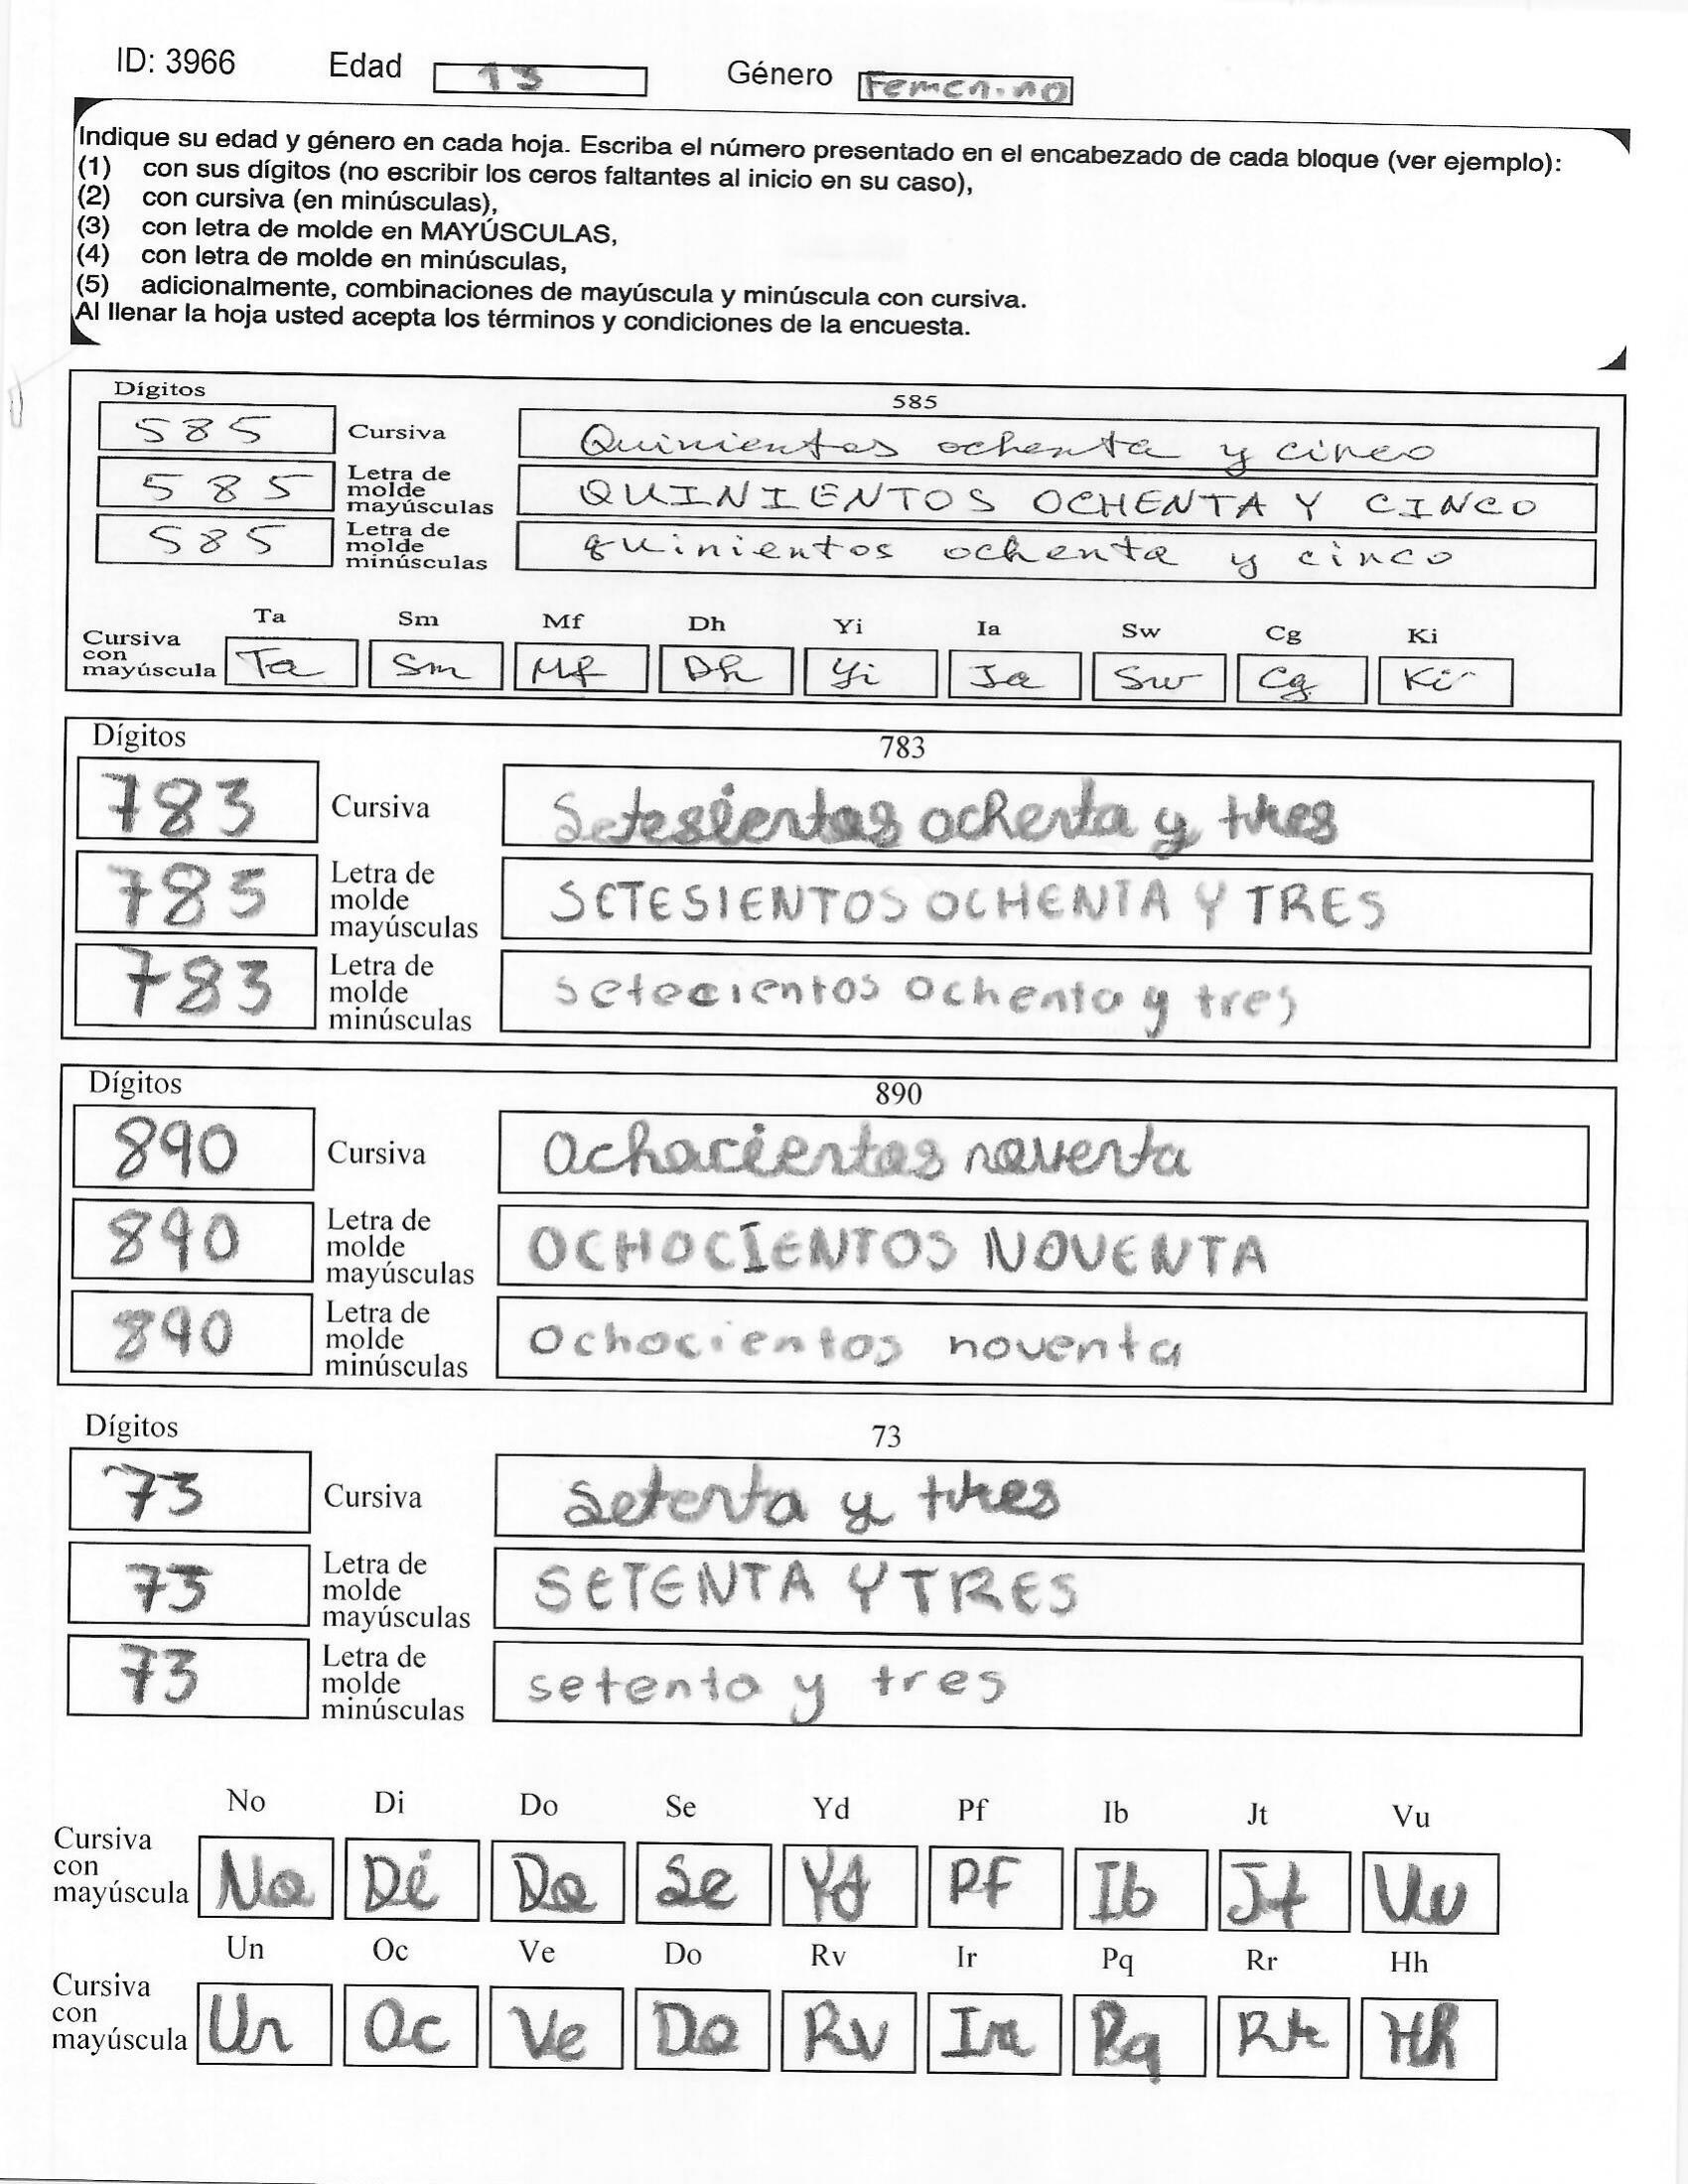 ID: 3966 Edad 13 Género Femenino
Indique su edad y género en cada hoja. Escriba el número presentado en el encabezado de cada bloque (ver ejemplo):
(1) con sus dígitos (no escribir los ceros faltantes al inicio en su caso),
(2) con cursiva (en minúsculas),
(3) con letra de molde en MAYÚSCULAS,
(4) con letra de molde en minúsculas,
(5) adicionalmente, combinaciones de mayúscula y minúscula con cursiva.
Al llenar la hoja usted acepta los términos y condiciones de la encuesta.
Dígitos 585
585 Cursiva Quinientos ochenta y cinco
585 Letra de molde mayúsculas QUINIENTOS OCHENTA Y CINCO
585 Letra de molde minúsculas quinientos ochenta y cinco
Ta Sm Mf Dh Yi Ia Sw Cg Ki
Cursiva con mayúscula Ta Sm Mf Dh Yi Ia Sw Cg Ki
Dígitos 783
783 Cursiva Setesientos ochenta y tres
785 Letra de molde mayúsculas SETESIENTOS OCHENTA Y TRES
783 Letra de molde minúsculas setecientos ochenta y tres
Dígitos 890
890 Cursiva Ochocientos noventa
890 Letra de molde mayúsculas OCHOCIENTOS NOVENTA
890 Letra de molde minúsculas ochocientos noventa
Dígitos 73
73 Cursiva setenta y tres
73 Letra de molde mayúsculas SETENTA Y TRES
73 Letra de molde minúsculas setenta y tres
No Di Do Se Yd Pf Ib Jt Vu
Cursiva con mayúscula No Di Do Se Yd Pf Ib Jt Vu
Un Oc Ve Do Rv Ir Pq Rr Hh
Cursiva con mayúscula Un Oc Ve Do Rv Ir Pq Rr Hh